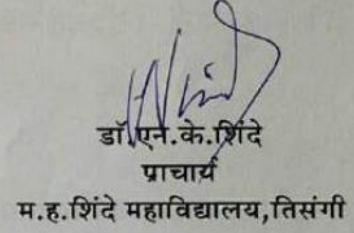 डॉ.एन.के.शिंदे
प्राचार्य
म.ह.शिंदे महाविद्यालय,तिसंगी